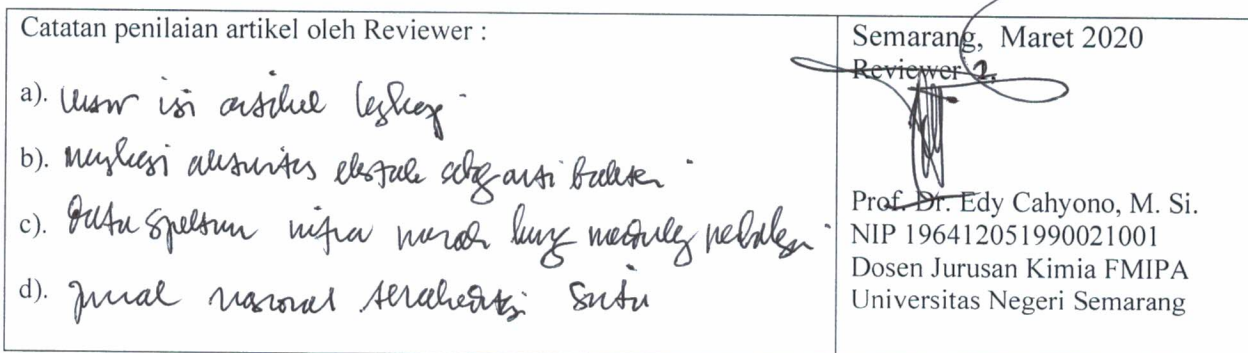 Catatan penilaian artikel oleh Reviewer :
a). unsur isi artikel lengkap
b). aktivitas ekstrak sbg anti bakteri
c). Data spektrum infra merah
d). jurnal nasional terakreditasi Sinta
Semarang, Maret 2020
Reviewer 2,
Prof. Dr. Edy Cahyono, M. Si.
NIP 196412051990021001
Dosen Jurusan Kimia FMIPA
Universitas Negeri Semarang